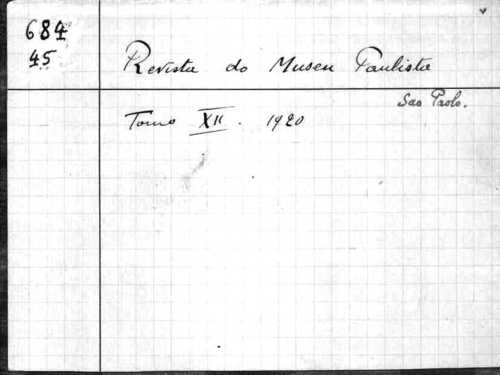 684
45
Revista do Museu Paulista
Sao Paolo.
Tomo XII. 1920